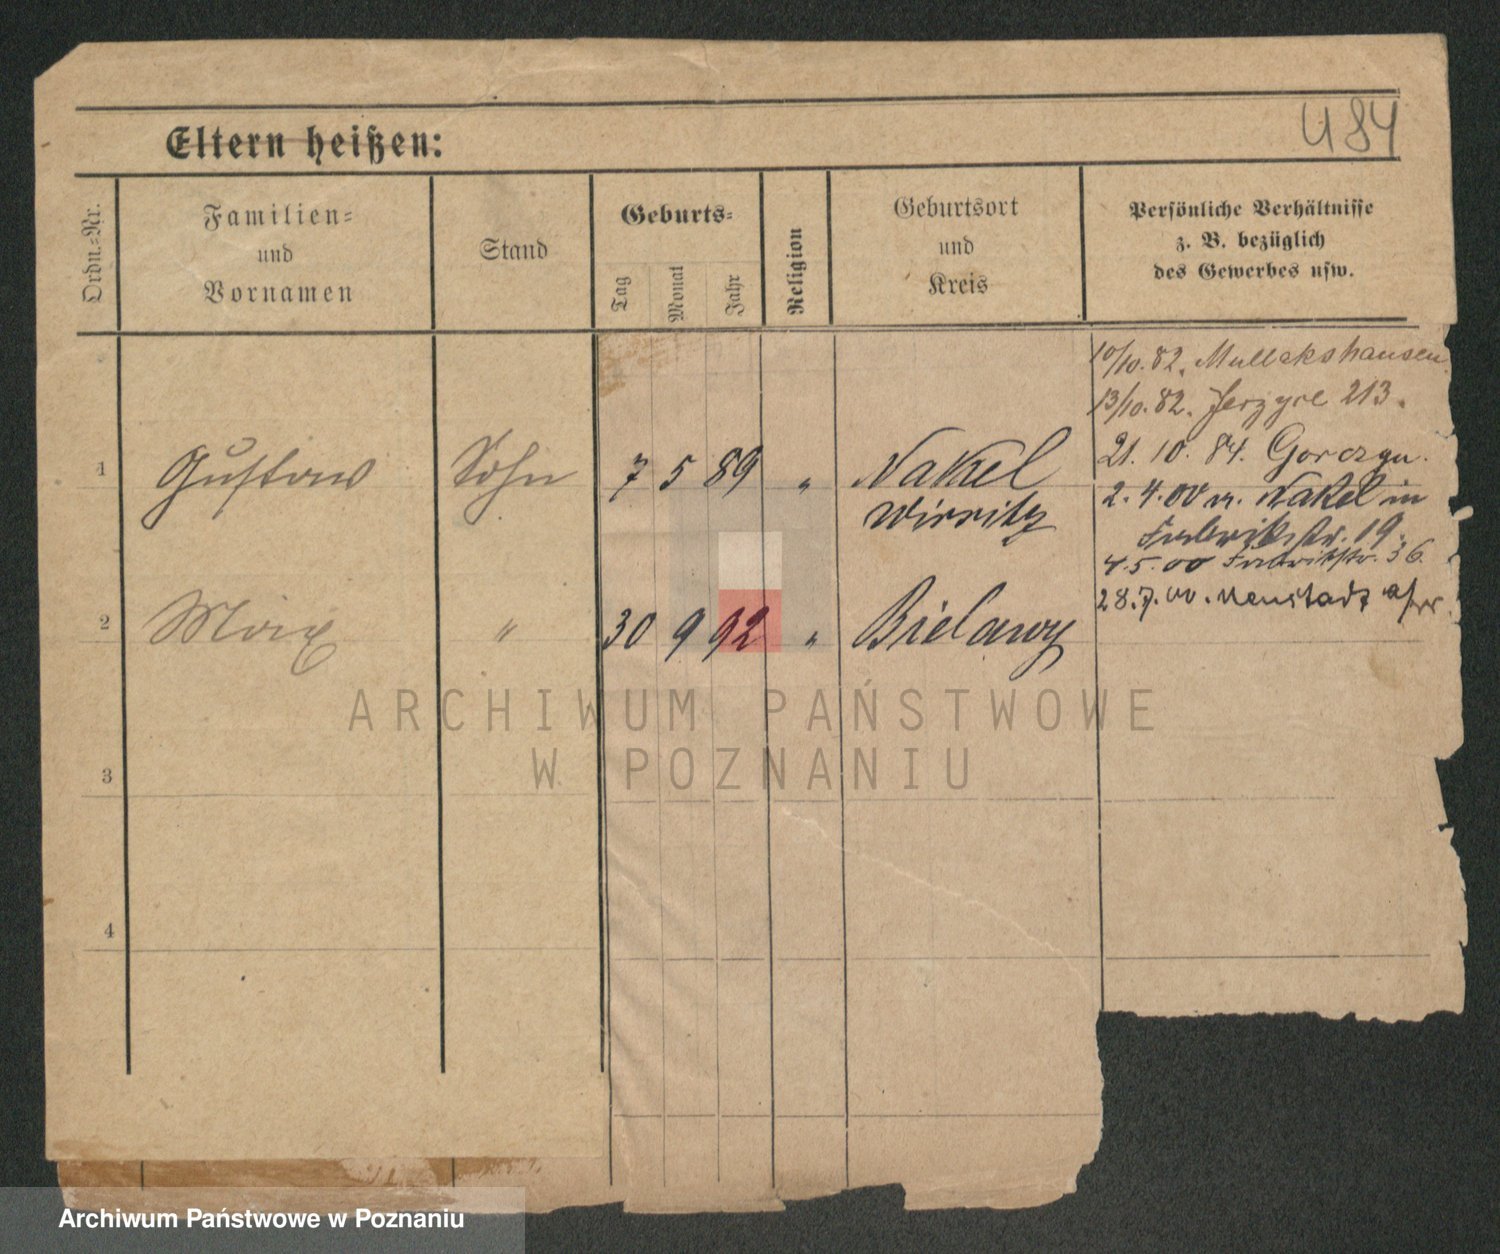 484
Eltern heißen:
Ordn.=Nr.
Familien=
und
Vornamen
Stand
Geburts=
Tag
Monat
Jahr
Religion
Geburtsort
und
Kreis
Persönliche Verhältnisse
z. B. bezüglich
des Gewerbes usw.
10/10. 82.
13/10. 82. 213.
1 Gustav Sohn 7 5 89 " Nakel
Wirsitz
21. 10. 84. Gorczyn.
2. 4. 00 n. Nakel in
19.
4. 5. 00 36.
28. 7. 00. Neustadt a/W.
2 Max " 30 9 92 " Bielawy
3
4
ARCHIWUM PAŃSTWOWE
W POZNANIU
Archiwum Państwowe w Poznaniu